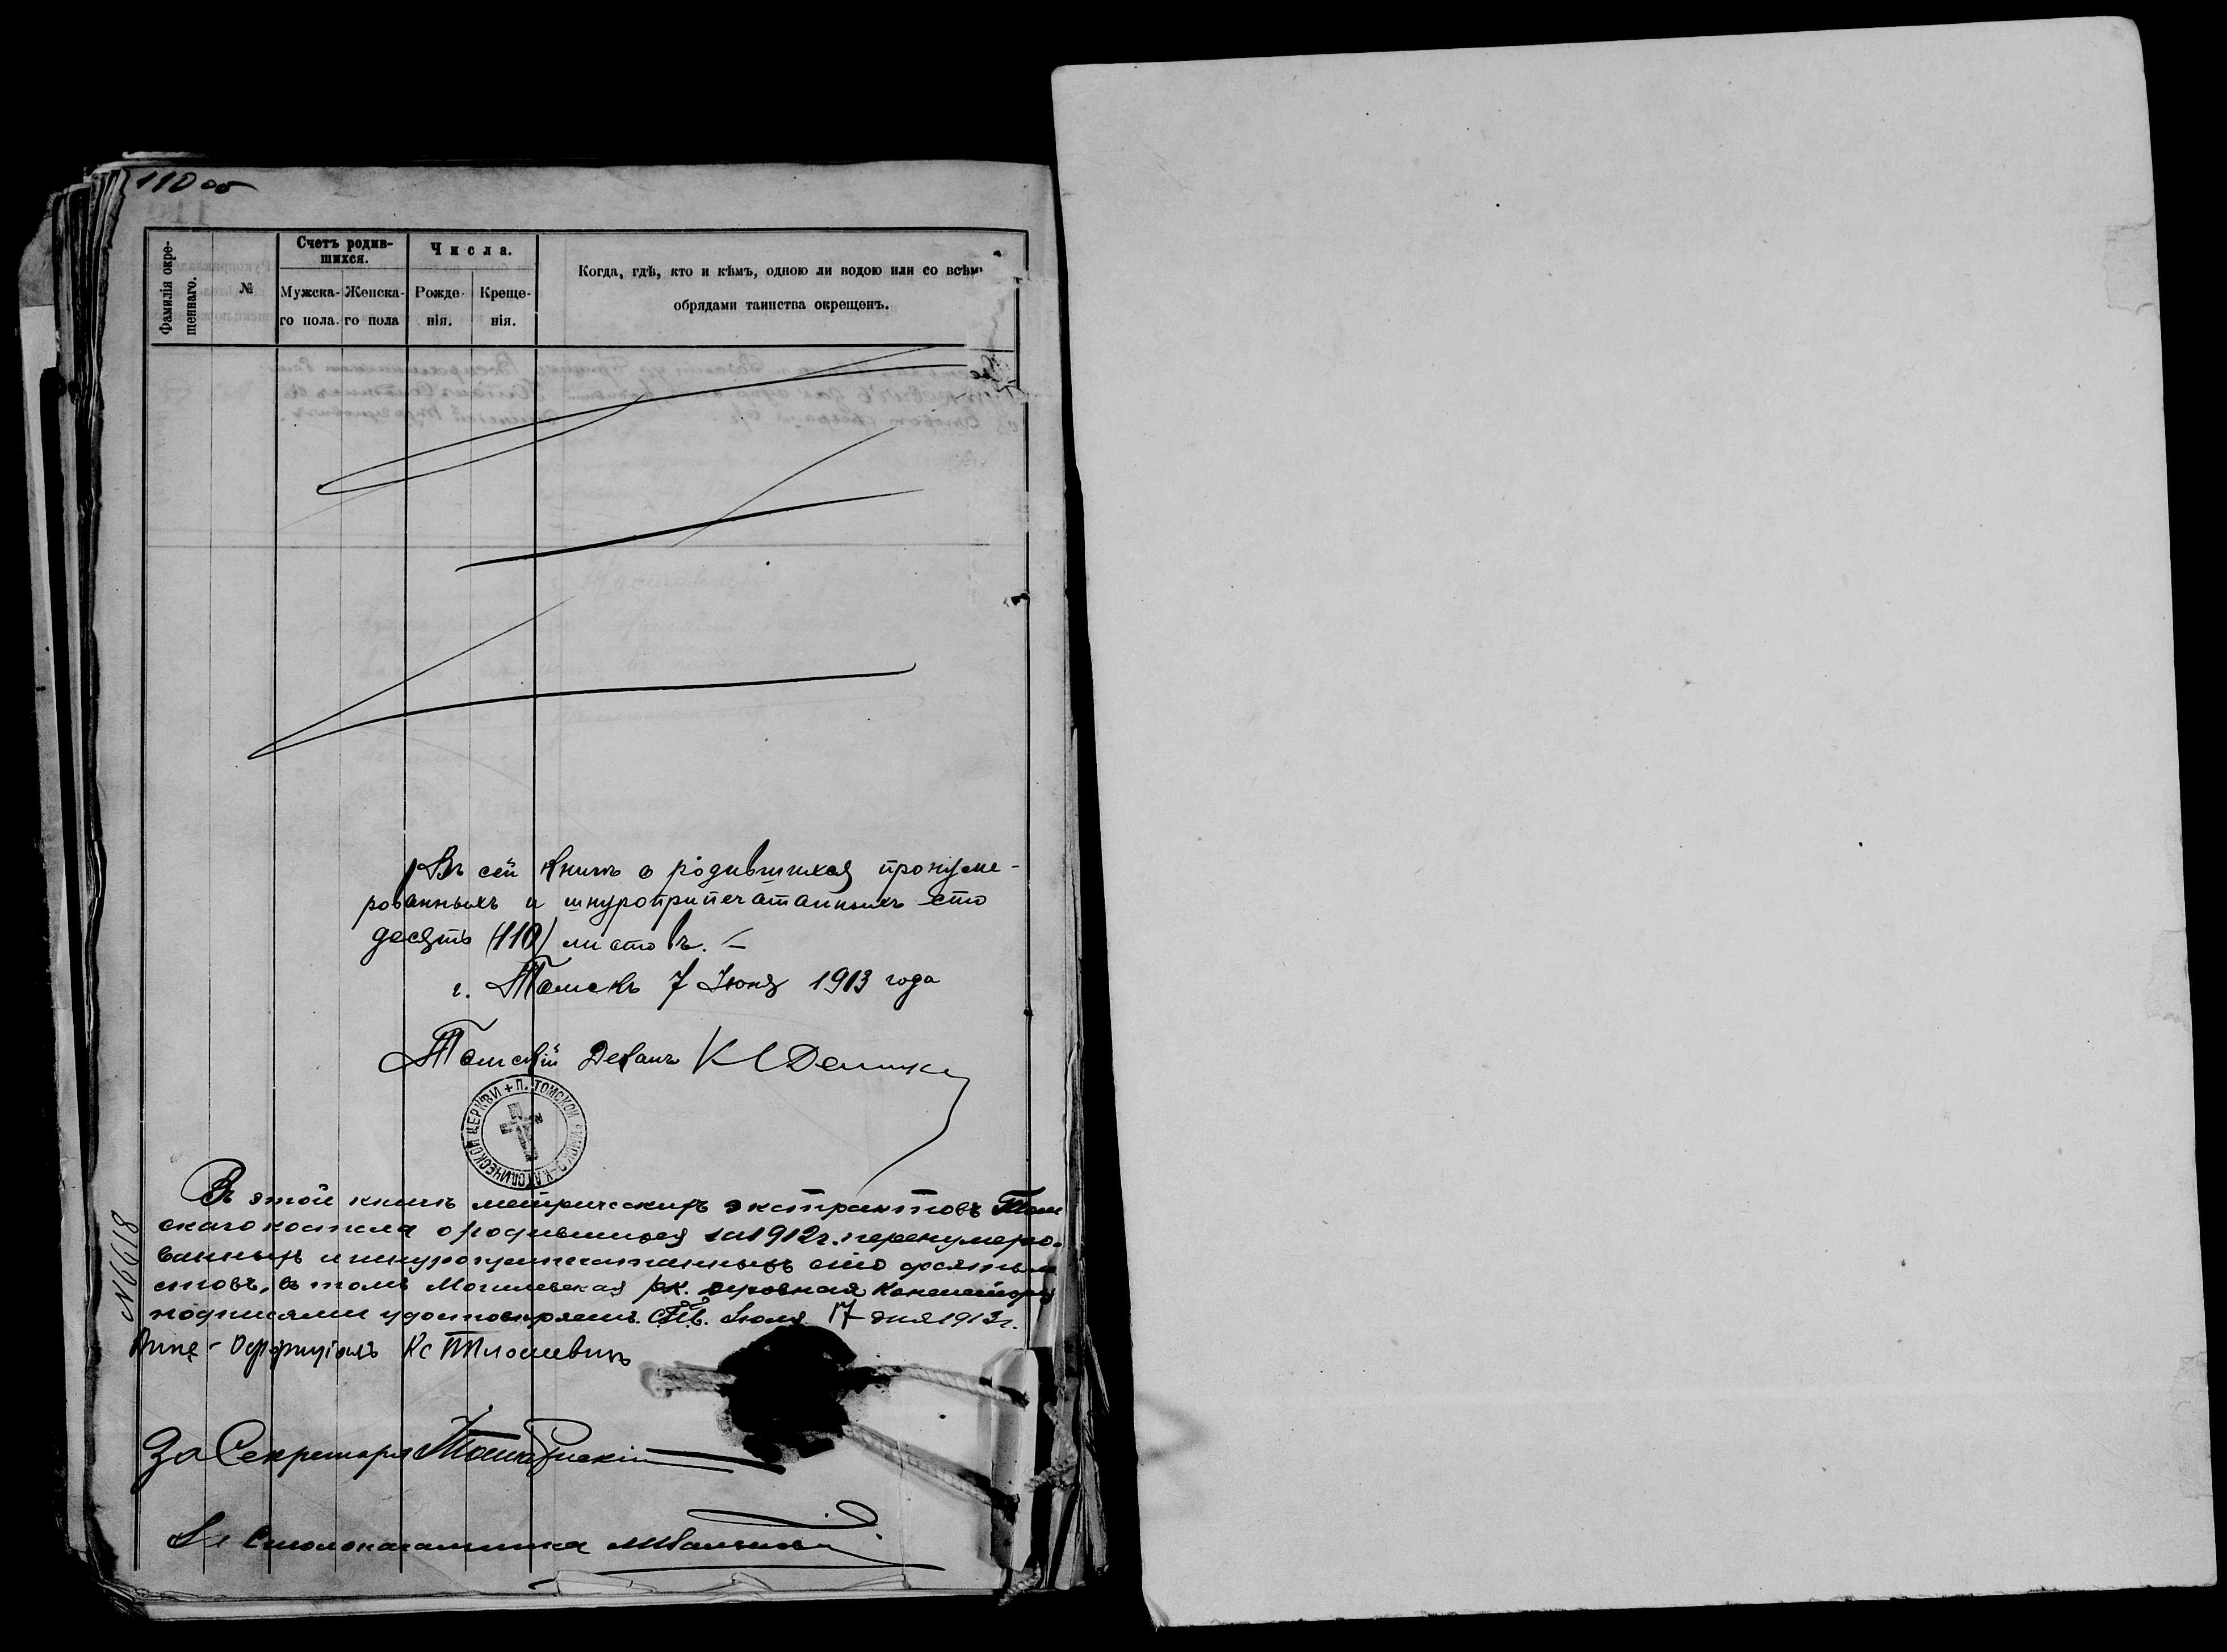 110 об
Фамилія окре-
щеннаго.
№
Счетъ родив-
шихся.
Мужска-
го пола.
Женска-
го пола
Числа.
Рожде-
нія.
Креще-
нія.
Когда, гдѣ, кто и кѣмъ, одною ли водою или со всѣм
обрядами таинства окрещенъ.
Въ сей книгѣ о родившихся пронуме-
рованныхъ и шнуроприпечатанныхъ сто
десять (110) листовъ. –
г. Томскъ 7 Іюня 1913 года
Томскій Деканъ
П. ТОМСКОЙ РИМСКО-КАТОЛИЧЕСКОЙ ЦЕРКВИ +
Въ этой книгѣ метрическихъ экстрактовъ Том
скаго костела о родившихся за 1912 г. перенумеро-
ванныхъ и шнуроприпечатанныхъ сто десять ли
стовъ, въ томъ Могилевская рк. духовная Консисторія
подписями удостовѣряетъ. СПб. Іюля 17 дня 1913 г.
№ 6618
Вице-Оффиціалъ Кс
За Секретаря
За Столоначальника